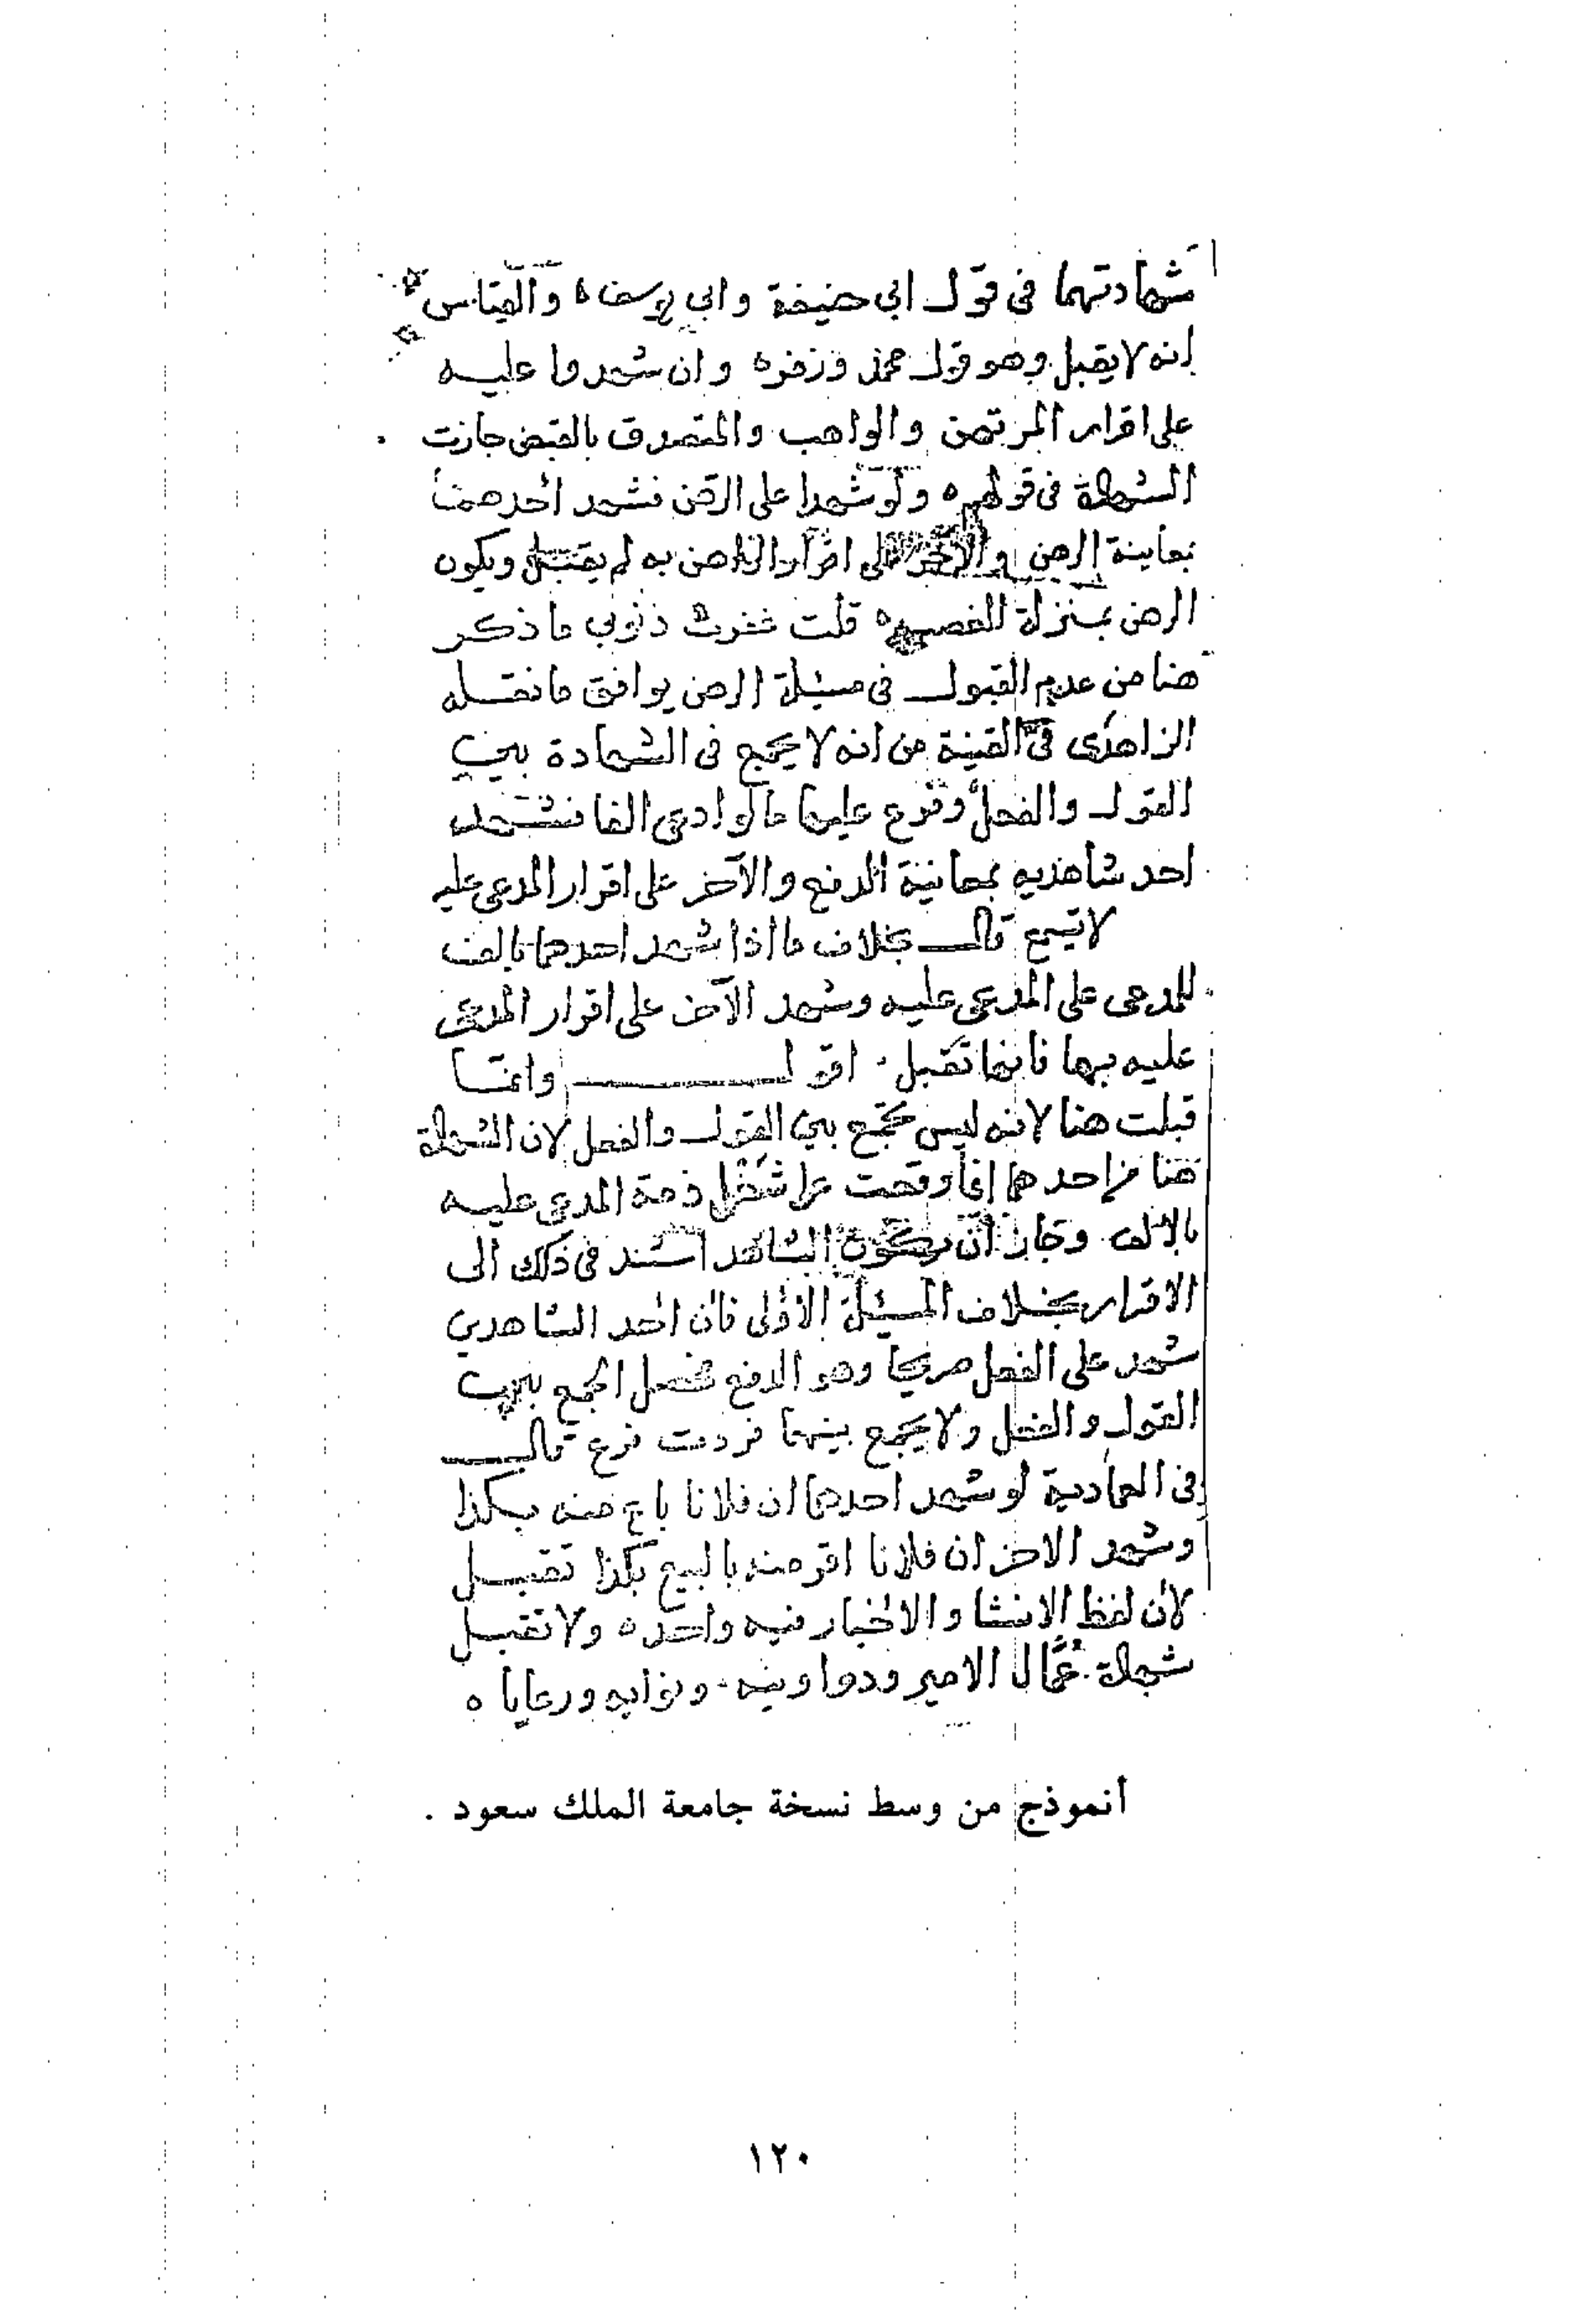 شهادتهما فى قول ابى حنيفة وابى يوسف ه والقياس
انه لا يقبل وهو قول محمد وزفره وان شهدوا عليه
على اقرار المرتهن والواهب والمتصدق بالقبض جازت
الشهادة فى قولهم ه ولو شهدا على الرهن فشهد احدهما
بمعاينة الرهن والآخر على اقرار الراهن به لم يقبل ويكون
الرهن بمنزلة الغصب ه قلت غفرت ذنوبى ما ذكر
هنا من عدم القبول فى مسئلة الرهن يوافق ما نقله
الزاهدى فى القنية من انه لا يجمع فى الشهادة بين
القول والفعل وفرع عليها ما لو ادعى الفا فشهد
احد شاهديه بمعاينة الدفع والآخر على اقرار المدعى عليه
لا تسمع قال بخلاف ما اذا شهد احدهما بالف
للمدعى على المدعى عليه وشهد الآخر على اقرار المدعى
عليه بها فانها تقبل اقول وانما
قبلت هنا لانه ليس بجمع بين القول والفعل لان الشهادة
هنا من احدهما انما وقعت على شغل ذمة المدعى عليه
بالالف وجاز ان يكون الشاهد استند فى ذلك الى
الاقرار بخلاف المسئلة الاولى فان احد الشاهدين
شهد على الفعل صريحا وهو الدفع فحصل الجمع بين
القول والفعل ولا يجمع بينهما فردت فرع قال
فى العمادية لو شهد احدهما ان فلانا باع منه بكذا
وشهد الاخر ان فلانا اقر منه بالبيع بكذا تقبل
لان لفظ الانشا والاخبار فيه واحد ه ولا تقبل
شهادة عمال الامير ودواوينه ونوابه ورعايا ه
أنموذج من وسط نسخة جامعة الملك سعود .
١٢٠